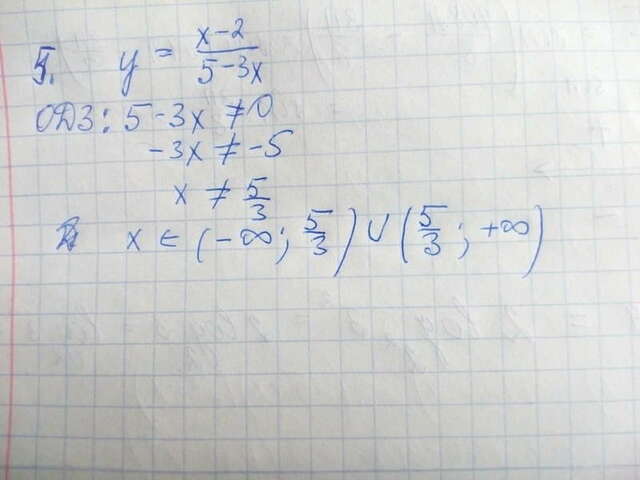 5. y = \frac{x-2}{5-3x}
ОДЗ: 5-3x ≠ 0
-3x ≠ -5
x ≠ \frac{5}{3}
x ∈ (-∞; \frac{5}{3}) ∪ (\frac{5}{3}; +∞)